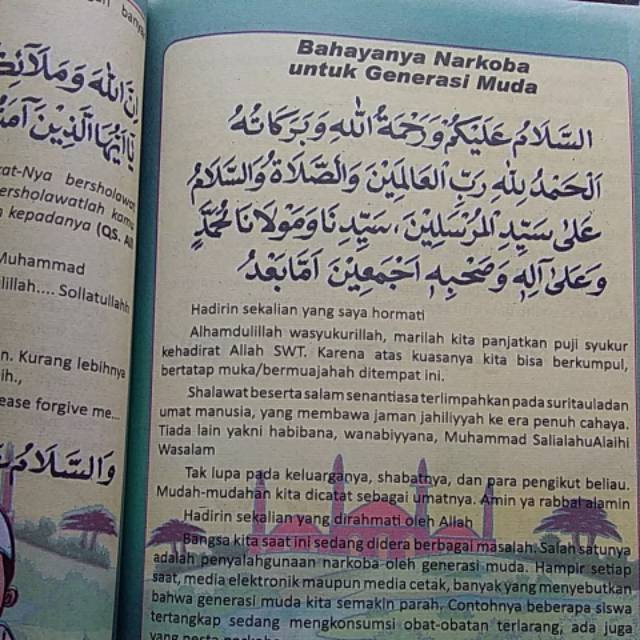 banyak
اِنَّ اللّٰهَ وَمَلَآئِكَ
يَآ اَيُّهَا الَّذِيْنَ آمَنُ
at-Nya bersholawat
ersholawatlah kamu
kepadanya (QS. Al
Muhammad
lillah.... Sollatullahh
n. Kurang lebihnya
ih.,
ease forgive me...
وَالسَّلَامُ
Bahayanya Narkoba
untuk Generasi Muda
السَّلَامُ عَلَيْكُمْ وَرَحْمَةُ اللّٰهِ وَبَرَكَاتُهُ
اَلْحَمْدُ لِلّٰهِ رَبِّ الْعَالَمِيْنَ وَالصَّلَاةُ وَالسَّلَامُ
عَلىٰ سَيِّدِ الْمُرْسَلِيْنَ، سَيِّدِنَا وَمَوْلَانَا مُحَمَّدٍ
وَعَلىٰ آلِهِ وَصَحْبِهِ اَجْمَعِيْنَ اَمَّا بَعْدُ
Hadirin sekalian yang saya hormati
Alhamdulillah wasyukurillah, marilah kita panjatkan puji syukur
kehadirat Allah SWT. Karena atas kuasanya kita bisa berkumpul,
bertatap muka/bermuajahah ditempat ini.
Shalawat beserta salam senantiasa terlimpahkan pada suritauladan
umat manusia, yang membawa jaman jahiliyyah ke era penuh cahaya.
Tiada lain yakni habibana, wanabiyyana, Muhammad SalialahuAlaihi
Wasalam
Tak lupa pada keluarganya, shabatnya, dan para pengikut beliau.
Mudah-mudahan kita dicatat sebagai umatnya. Amin ya rabbal alamin
Hadirin sekalian yang dirahmati oleh Allah
Bangsa kita saat ini sedang didera berbagai masalah. Salah satunya
adalah penyalahgunaan narkoba oleh generasi muda. Hampir setiap
saat, media elektronik maupun media cetak, banyak yang menyebutkan
bahwa generasi muda kita semakin parah. Contohnya beberapa siswa
tertangkap sedang mengkonsumsi obat-obatan terlarang, ada juga
yang